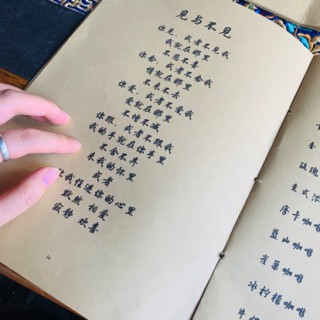 见与不见
你见，或者不见我
我就在那里
不悲不喜
你念，或者不念我
情就在那里
不来不去
你爱，或者不爱我
爱就在那里
不增不减
你跟，或者不跟我
我的手就在你手里
不舍不弃
来我的怀里
或者
让我住进你的心里
默然 相爱
寂静 欢喜
玫瑰
意式浓
摩卡咖啡
蓝山咖啡
雀巢咖啡
冰柠檬咖啡